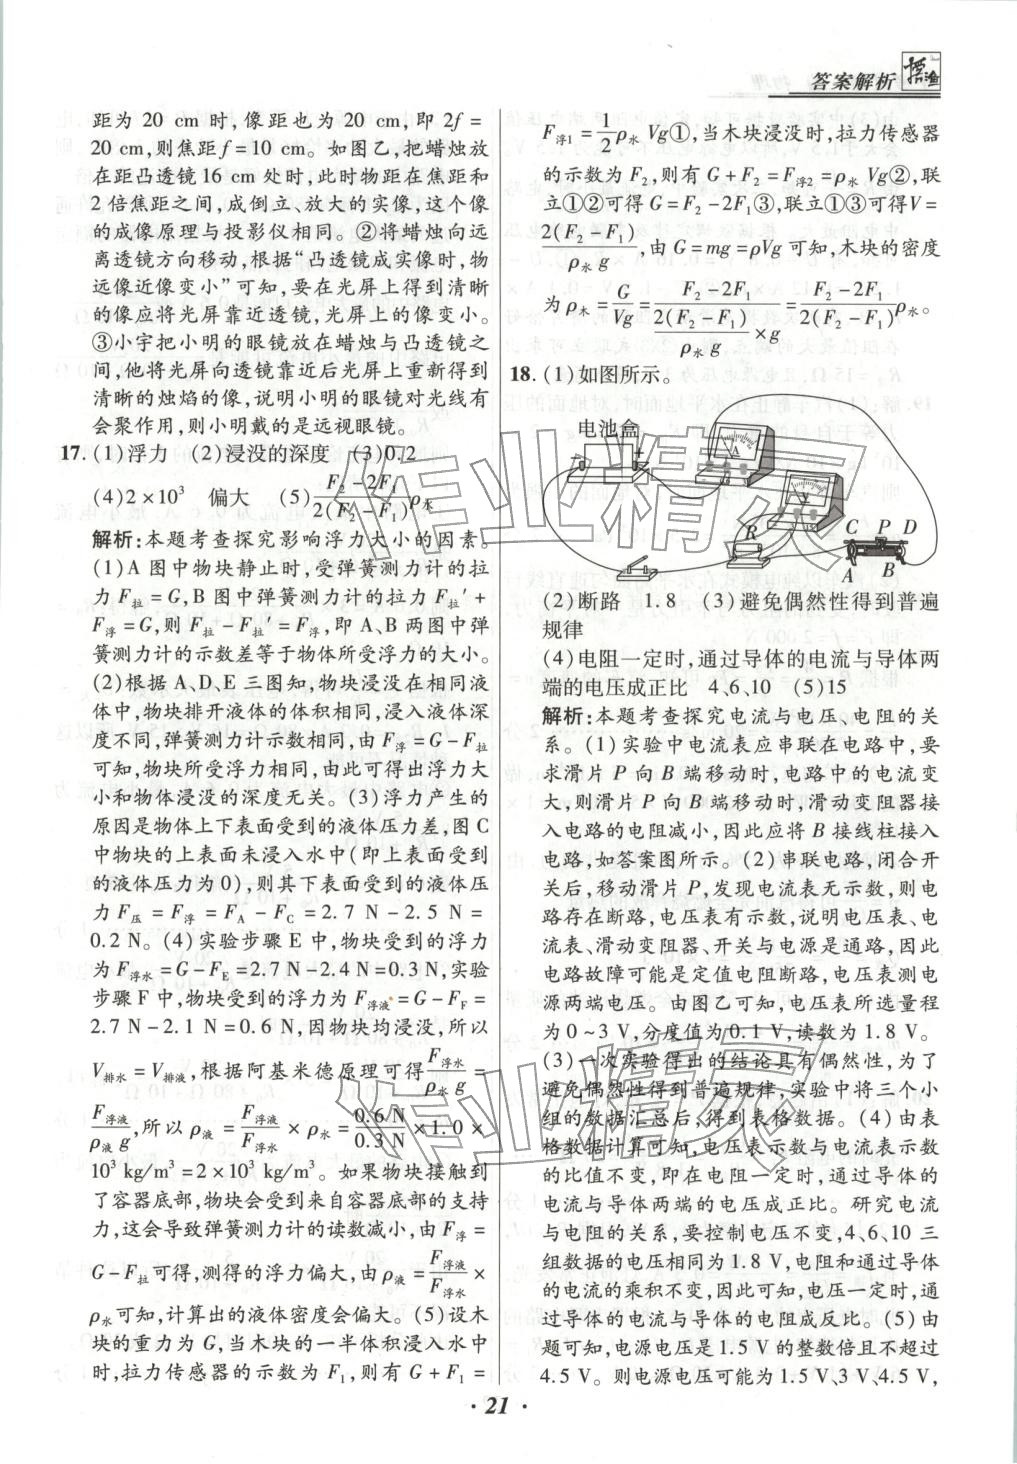 答案解析
距为 20 cm 时,像距也为 20 cm,即 2f =
20 cm,则焦距 f = 10 cm。如图乙,把蜡烛放
在距凸透镜 16 cm 处时,此时物距在焦距和
2 倍焦距之间,成倒立、放大的实像,这个像
的成像原理与投影仪相同。②将蜡烛向远
离透镜方向移动,根据“凸透镜成实像时,物
远像近像变小”可知,要在光屏上得到清晰
的像应将光屏靠近透镜,光屏上的像变小。
③小宇把小明的眼镜放在蜡烛与凸透镜之
间,他将光屏向透镜靠近后光屏上重新得到
清晰的烛焰的像,说明小明的眼镜对光线有
会聚作用,则小明戴的是远视眼镜。
17. (1)浮力 (2)浸没的深度 (3)0.2
(4)2×10³ 偏大 (5)\frac{F₂-2F₁}{2(F₂-F₁)}ρ水
解析:本题考查探究影响浮力大小的因素。
(1)A 图中物块静止时,受弹簧测力计的拉
力 F拉=G,B 图中弹簧测力计的拉力 F拉′+
F浮=G,则 F拉-F拉′=F浮,即 A、B 两图中弹
簧测力计的示数差等于物体所受浮力的大小。
(2)根据 A、D、E 三图知,物块浸没在相同液
体中,物块排开液体的体积相同,浸入液体深
度不同,弹簧测力计示数相同,由 F浮=G-F拉
可知,物块所受浮力相同,由此可得出浮力大
小和物体浸没的深度无关。(3)浮力产生的
原因是物体上下表面受到的液体压力差,图 C
中物块的上表面未浸入水中(即上表面受到
的液体压力为 0),则其下表面受到的液体压
力 F压=F浮=FA-FC=2.7 N-2.5 N=
0.2 N。(4)实验步骤 E 中,物块受到的浮力
为 F浮水=G-FE=2.7 N-2.4 N=0.3 N,实验
步骤 F 中,物块受到的浮力为 F浮液=G-FF=
2.7 N-2.1 N=0.6 N,因物块均浸没,所以
V排水=V排液,根据阿基米德原理可得\frac{F浮水}{ρ水g}=
\frac{F浮液}{ρ液g},所以 ρ液=\frac{F浮液}{F浮水}×ρ水=\frac{0.6 N}{0.3 N}×1.0×
10³ kg/m³=2×10³ kg/m³。如果物块接触到
了容器底部,物块会受到来自容器底部的支持
力,这会导致弹簧测力计的读数减小,由 F浮=
G-F拉可得,测得的浮力偏大,由 ρ液=\frac{F浮液}{F浮水}×
ρ水可知,计算出的液体密度会偏大。(5)设木
块的重力为 G,当木块的一半体积浸入水中
时,拉力传感器的示数为 F₁,则有 G+F₁=
F浮1=\frac{1}{2}ρ水Vg①,当木块浸没时,拉力传感器
的示数为 F₂,则有 G+F₂=F浮2=ρ水Vg②,联
立①②可得 G=F₂-2F₁③,联立①③可得V=
\frac{2(F₂-F₁)}{ρ水g},由 G=mg=ρVg 可知,木块的密度
为 ρ木=\frac{G}{Vg}=\frac{F₂-2F₁}{\frac{2(F₂-F₁)}{ρ水g}×g}=\frac{F₂-2F₁}{2(F₂-F₁)}ρ水。
18. (1)如图所示。
电池盒
A
V
R
C P D
A B
(2)断路 1.8 (3)避免偶然性得到普遍
规律
(4)电阻一定时,通过导体的电流与导体两
端的电压成正比 4、6、10 (5)15
解析:本题考查探究电流与电压、电阻的关
系。(1)实验中电流表应串联在电路中,要
求滑片 P 向 B 端移动时,电路中的电流变
大,则滑片 P 向 B 端移动时,滑动变阻器接
入电路的电阻减小,因此应将 B 接线柱接入
电路,如答案图所示。(2)串联电路,闭合开
关后,移动滑片 P,发现电流表无示数,则电
路存在断路,电压表有示数,说明电压表、电
流表、滑动变阻器、开关与电源是通路,因此
电路故障可能是定值电阻断路,电压表测电
源两端电压。由图乙可知,电压表所选量程
为 0~3 V,分度值为 0.1 V,读数为 1.8 V。
(3)一次实验得出的结论具有偶然性,为了
避免偶然性得到普遍规律,实验中将三个小
组的数据汇总后,得到表格数据。(4)由表
格数据计算可知,电压表示数与电流表示数
的比值不变,即在电阻一定时,通过导体的
电流与导体两端的电压成正比。研究电流
与电阻的关系,要控制电压不变,4、6、10 三
组数据的电压相同为 1.8 V,电阻和通过导体
的电流的乘积不变,因此可知,电压一定时,通
过导体的电流与导体的电阻成反比。(5)由
题可知,电源电压是 1.5 V 的整数倍且不超过
4.5 V。则电源电压可能为 1.5 V、3 V、4.5 V,
· 21 ·
作业精灵
作业精灵